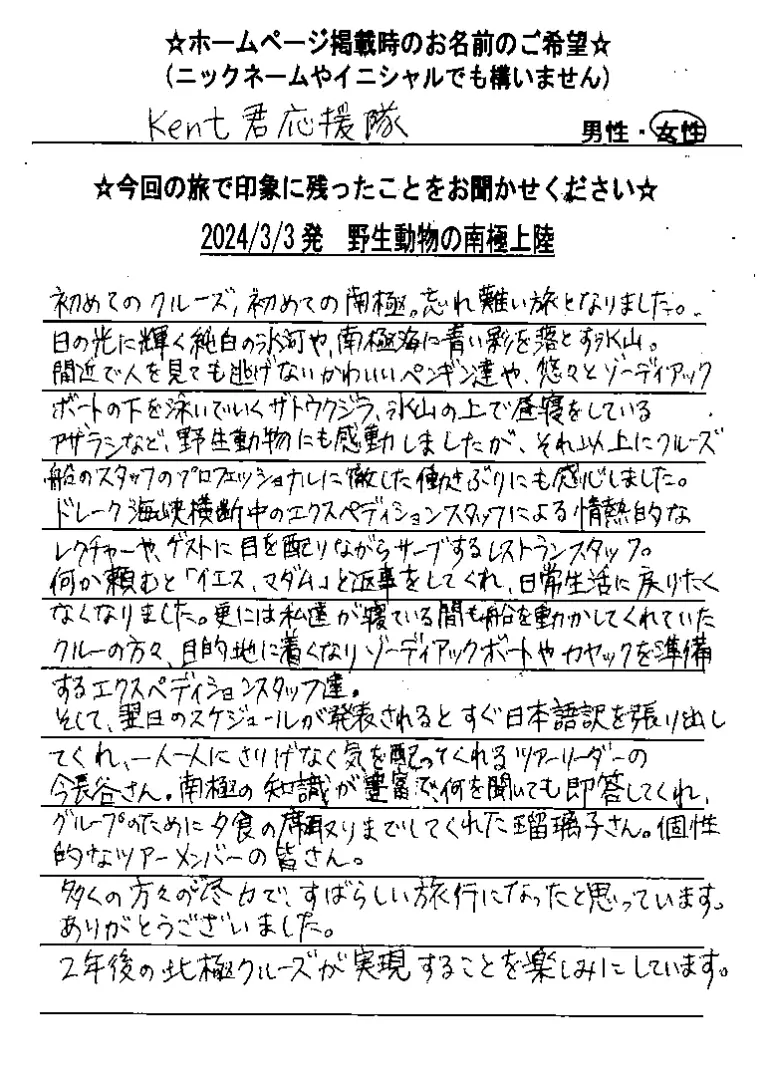 ☆ホームページ掲載時のお名前のご希望☆
(ニックネームやイニシャルでも構いません)
Kent君応援隊
男性・女性
☆今回の旅で印象に残ったことをお聞かせください☆
2024/3/3発 野生動物の南極上陸
初めてのクルーズ,初めての南極。忘れ難い旅となりました。
日の光に輝く純白の氷河や、南極海に青い影を落とす氷山。
間近で人を見ても逃げないかわいいペンギン達や、悠々とゾーディアック
ボートの下を泳いでいくザトウクジラ、氷山の上で昼寝をしている
アザラシなど、野生動物にも感動しましたが、それ以上にクルーズ
船のスタッフのプロフェッショナルに徹した働きぶりにも感心しました。
ドレーク海峡横断中のエクスペディションスタッフによる情熱的な
レクチャーや、ゲストに目を配りながらサーブするレストランスタッフ。
何か頼むと「イエス、マダム」と返事をしてくれ、日常生活に戻りたく
なくなりました。更には私達が寝ている間も船を動かしてくれていた
クルーの方々、目的地に着くなりゾーディアックボートやカヤックを準備
するエクスペディションスタッフ達。
そして、翌日のスケジュールが発表されるとすぐ日本語訳を張り出し
てくれ、一人一人にさりげなく気を配ってくれるツアーリーダーの
長谷さん。南極の知識が豊富で何を聞いても即答してくれ、
グループのために夕食の席取りまでしてくれた瑠璃子さん。個性
的なツアーメンバーの皆さん。
多くの方々のおかげで、すばらしい旅行になったと思っています。
ありがとうございました。
2年後の北極クルーズが実現することを楽しみにしています。